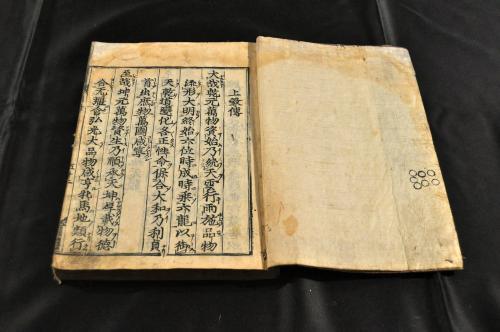 上彖傳
大哉乾元萬物資始乃統天雲行雨施品物
流形大明終始六位時成時乘六龍以御
天乾道變化各正性命保合大和乃利貞
首出庶物萬國咸寧
至哉坤元萬物資生乃順承天坤厚載物德
合无疆含弘光大品物咸亨牝馬地類行